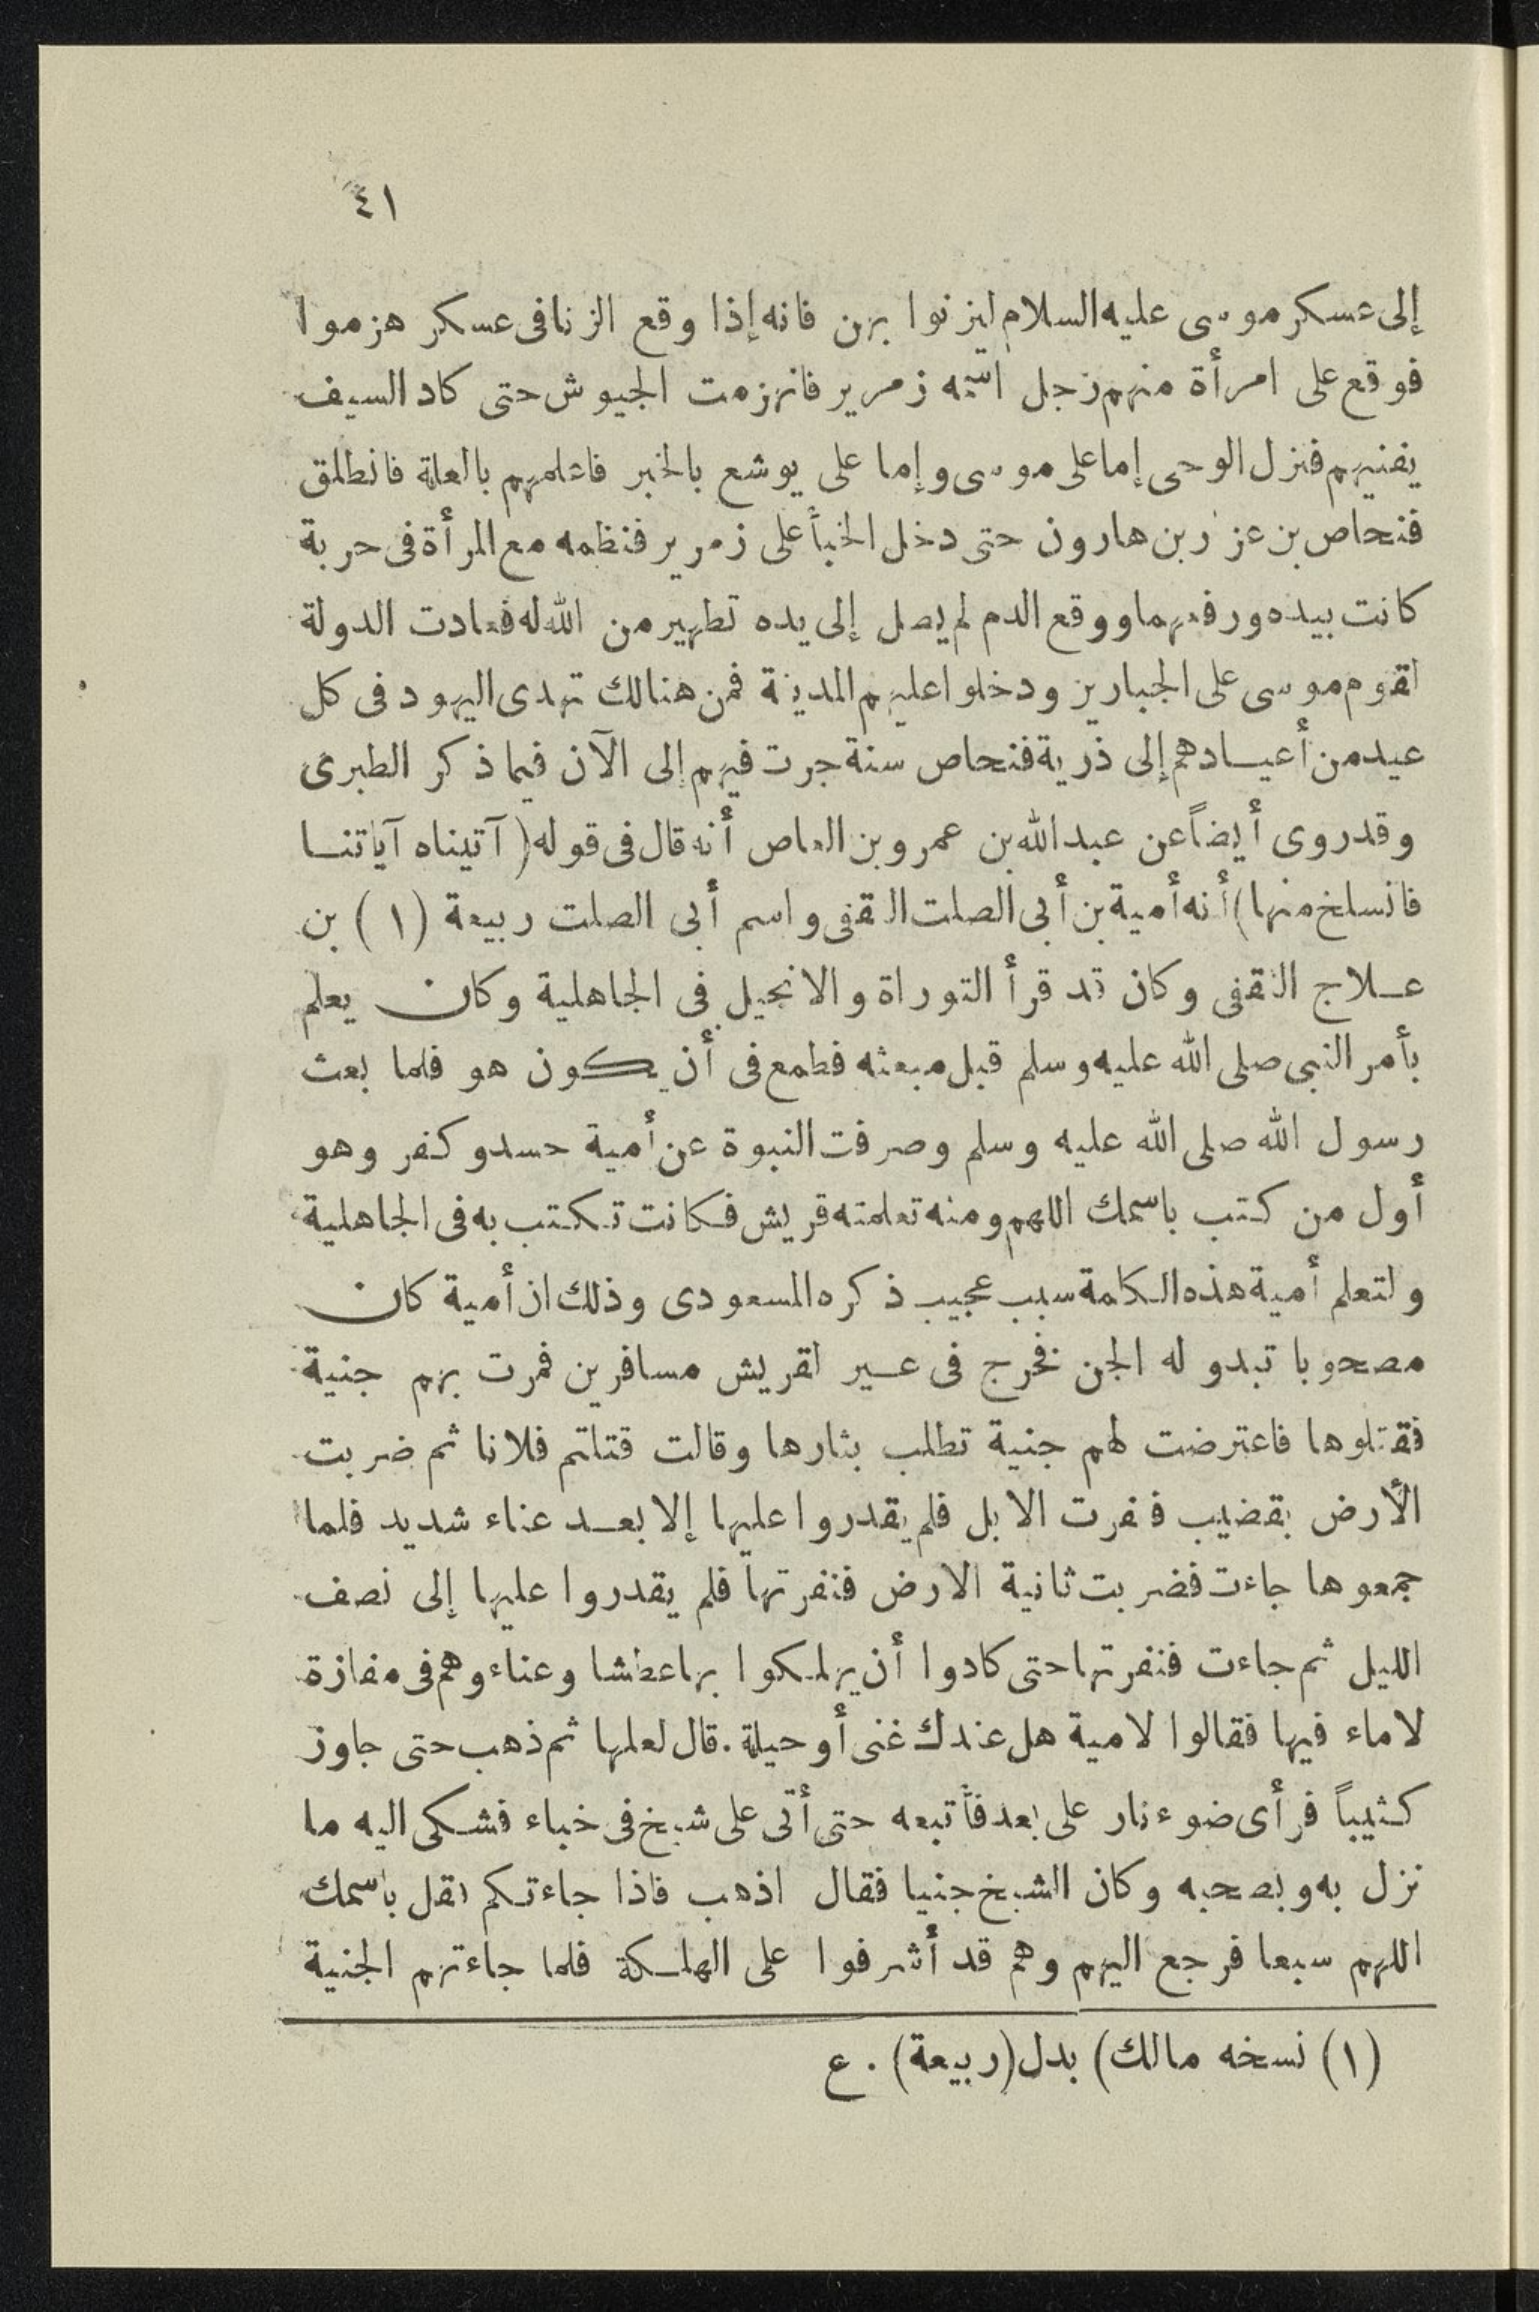 ٤١
إلى عسكر موسى عليه السلام ليزنوا بهن فانه إذا وقع الزنا فى عسكر هزموا
فوقع على امرأة منهم رجل اسمه زمرير فانهزمت الجيوش حتى كاد السيف
يفنيهم فنزل الوحى إما على موسى وإما على يوشع بالخبر فاعلمهم بالعلة فانطلق
فنحاص بن عزر بن هارون حتى دخل الخبأ على زمرير فنظمه مع المرأة فى حربة
كانت بيده ورفعهما ووقع الدم لم يصل إلى يده تطهير من الله له فعادت الدولة
لقوم موسى على الجبارين ودخلوا عليهم المدينة فمن هنالك تهدى اليهود فى كل
عيد من أعيادهم إلى ذرية فنحاص سنة جرت فيهم إلى الآن فيما ذكر الطبرى
وقد روى أيضاً عن عبد الله بن عمرو بن العاص أنه قال فى قوله (آتيناه آياتنا
فانسلخ منها) أنه أمية بن أبى الصلت الثقفى واسم أبى الصلت ربيعة (١) بن
علاج الثقفى وكان قد قرأ التوراة والانجيل فى الجاهلية وكان يعلم
بأمر النبى صلى الله عليه وسلم قبل مبعثه فطمع فى أن يكون هو فلما بعث
رسول الله صلى الله عليه وسلم وصرفت النبوة عن أمية حسد وكفر وهو
أول من كتب باسمك اللهم ومنه تعلمته قريش فكانت تكتب به فى الجاهلية
ولتعلم أمية هذه الكلمة سبب عجيب ذكره المسعودى وذلك ان أمية كان
مصحوبا تبدو له الجن فخرج فى عير لقريش مسافرين فمرت بهم جنية
فقتلوها فاعترضت لهم جنية تطلب بثارها وقالت قتلتم فلانا ثم ضربت
الأرض بقضيب فنفرت الابل فلم يقدروا عليها إلا بعد عناء شديد فلما
جمعوها جاءت فضربت ثانية الارض فنفرتها فلم يقدروا عليها إلى نصف
الليل ثم جاءت فنفرتها حتى كادوا أن يهلكوا بها عطشا وعناء وهم فى مفازة
لا ماء فيها فقالوا لامية هل عندك غنى أو حيلة . قال لعلها ثم ذهب حتى جاوز
كثيباً فرأى ضوء نار على بعد فأتبعه حتى أتى على شيخ فى خباء فشكى اليه ما
نزل به وبصحبه وكان الشيخ جنيا فقال اذهب فاذا جاءتكم فقل باسمك
اللهم سبعا فرجع اليهم وهم قد أشرفوا على الهلكة فلما جاءتهم الجنية
(١) نسخه مالك) بدل (ربيعة) . ع